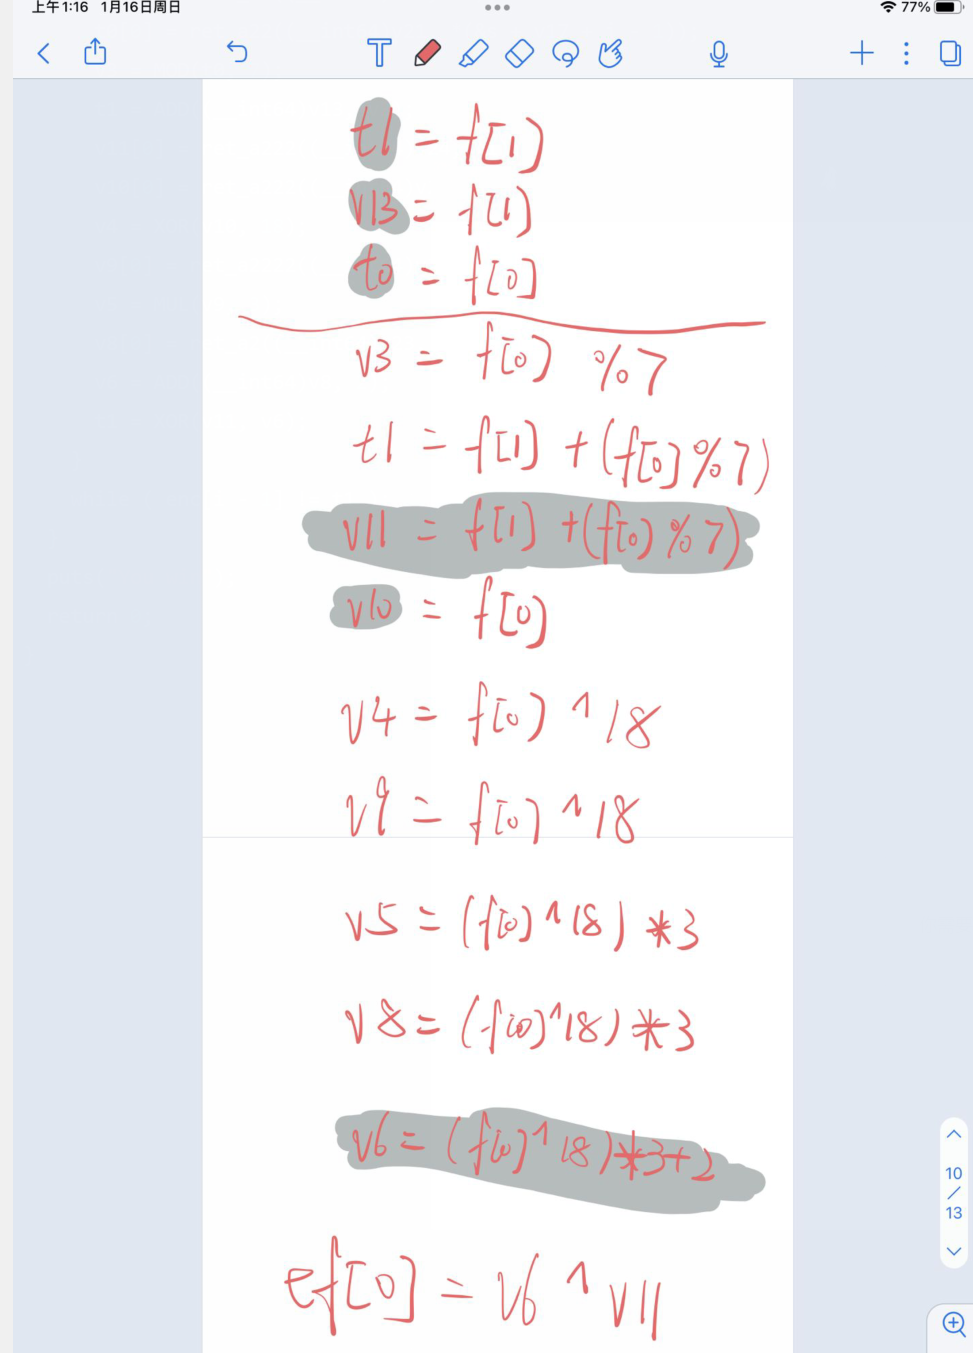 上午1:16 1月16日周日
77%
t1 = f[1]
v13 = f[1]
t0 = f[0]
v3 = f[0] %7
t1 = f[1] + (f[0]%7)
v11 = f[1] + (f[0]%7)
v10 = f[0]
v4 = f[0] ^18
v9 = f[0] ^18
v5 = (f[0]^18) *3
v8 = (f[0]^18) *3
v6 = (f[0]^18)*3+2
ef[0] = v6 ^ v11
10
/
13